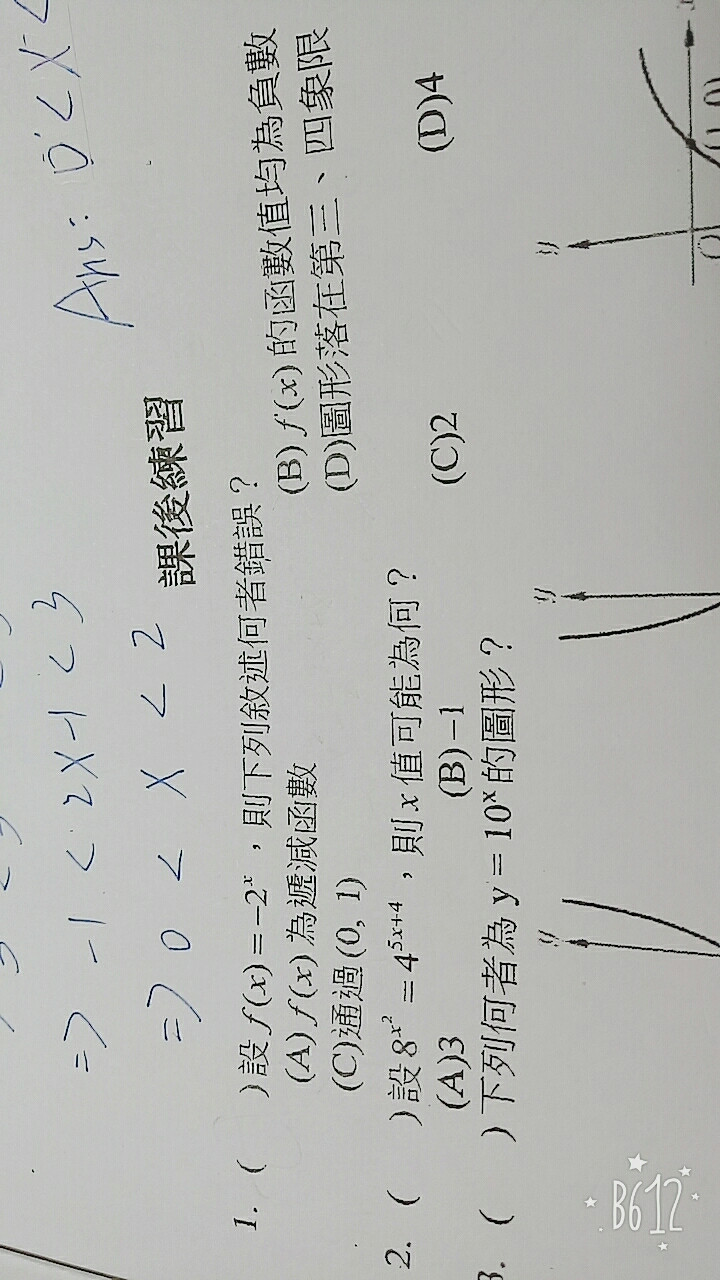 => -1 < 2x-1 < 3
=> 0 < x < 2
Ans: 0 < x <
課後練習
1. ( )設 f(x)=-2ˣ，則下列敘述何者錯誤？
(A) f(x) 為遞減函數 (B) f(x) 的函數值均為負數
(C)通過(0, 1) (D)圖形落在第三、四象限
2. ( )設 8^{x²} = 4^{5x+4}，則 x 值可能為何？
(A)3 (B)-1 (C)2 (D)4
3. ( )下列何者為 y = 10ˣ 的圖形？
y y y
x
O
B612